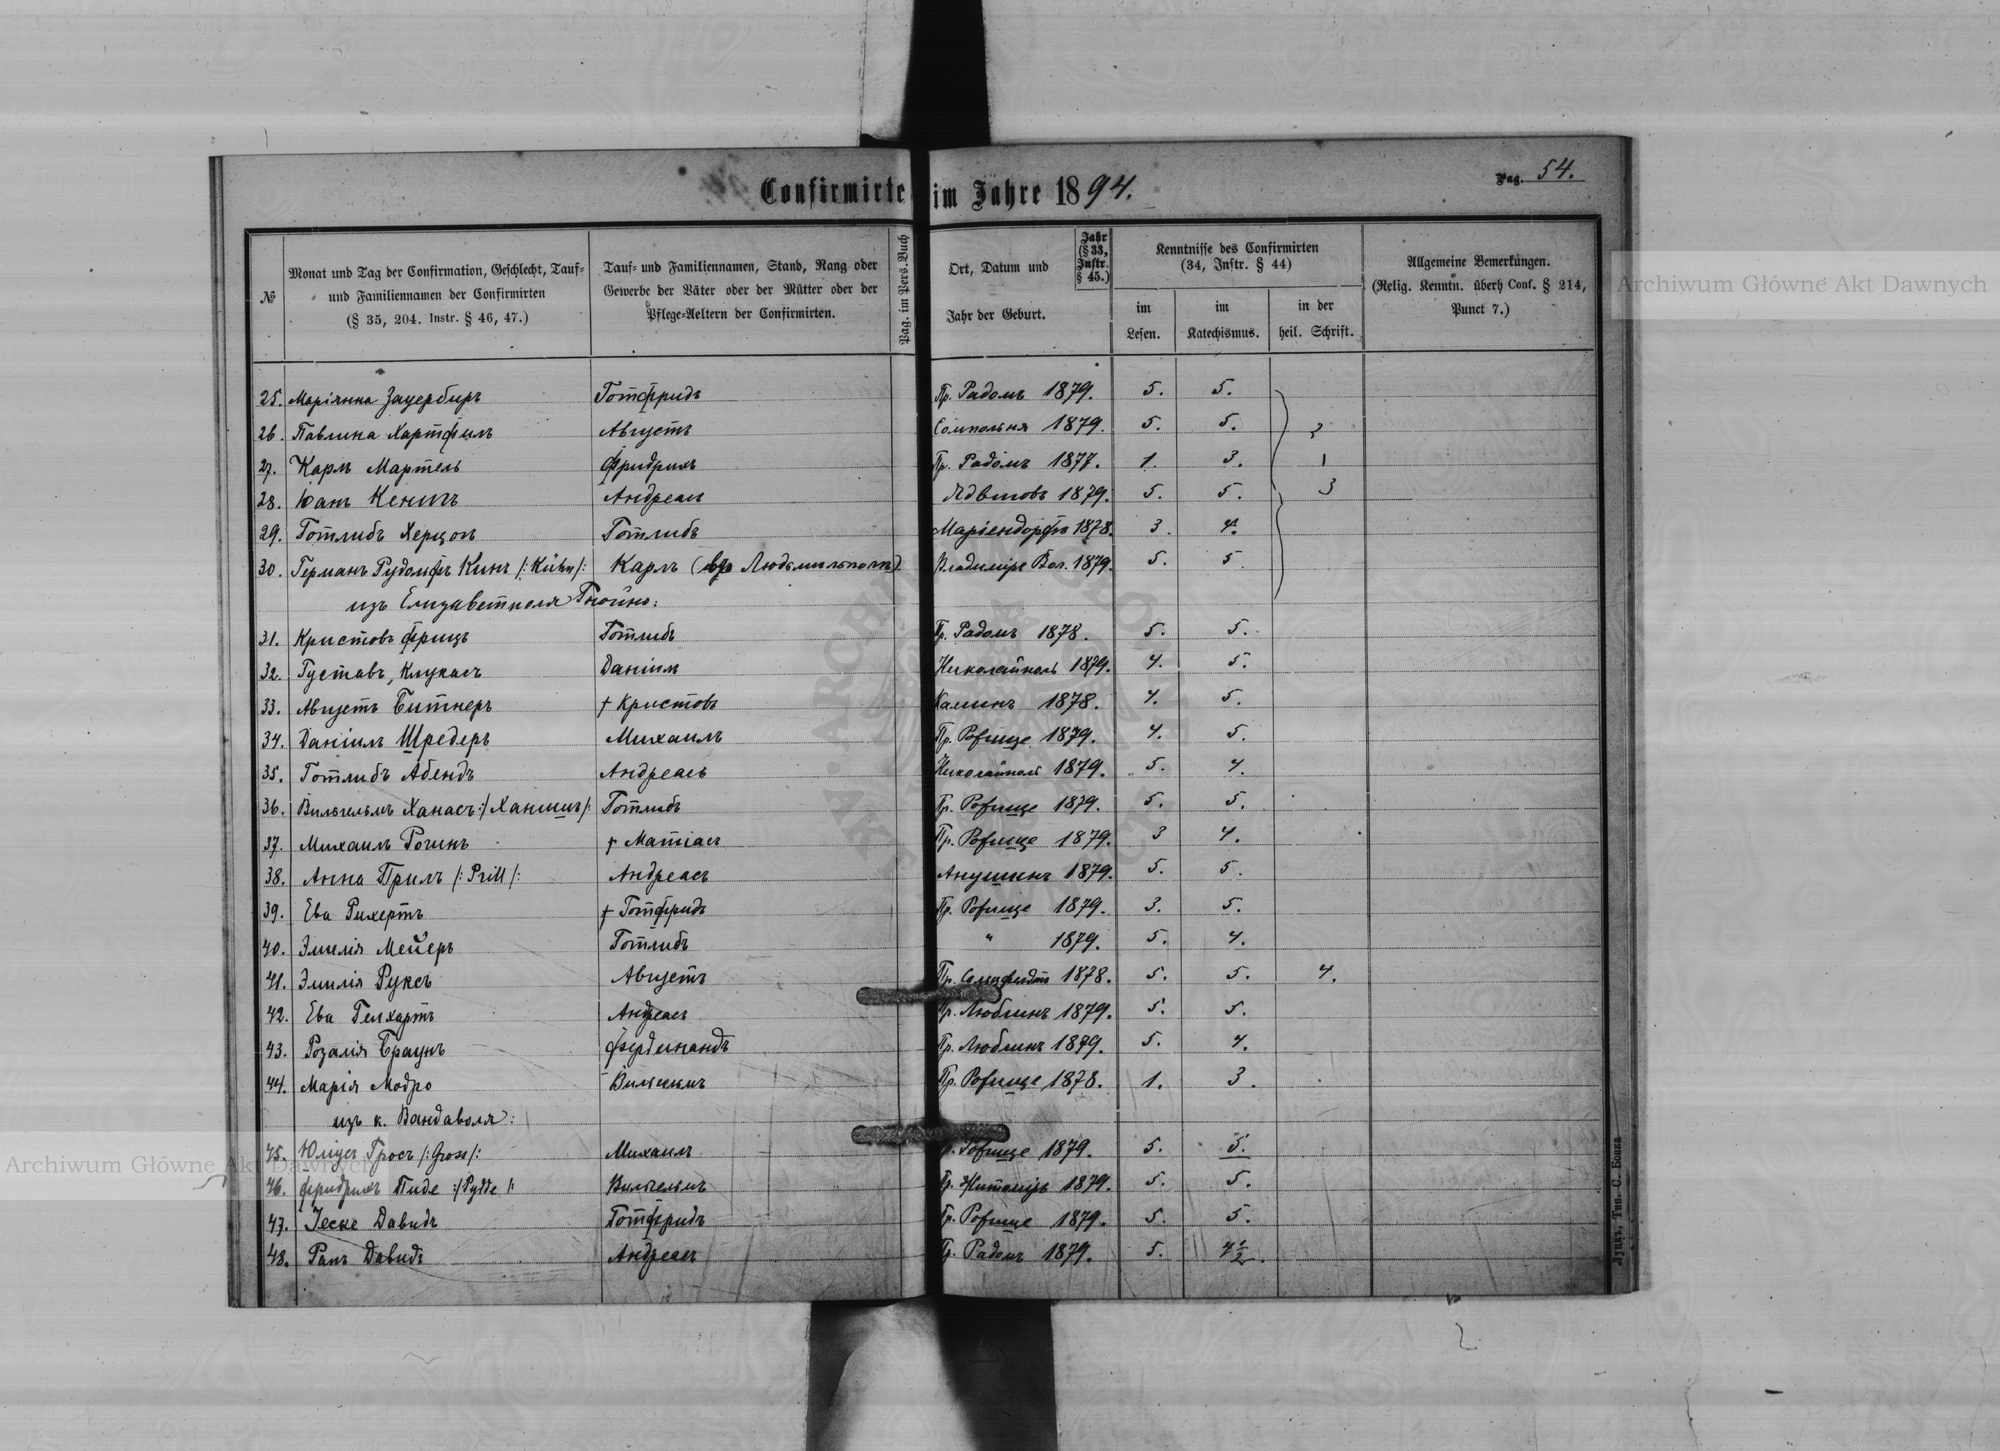 Confirmirte im Jahre 1894.
Pag. 54.
№
Monat und Tag der Confirmation, Geschlecht, Tauf-
und Familiennamen der Confirmirten
(§ 35, 204. Instr. § 46, 47.)
Tauf- und Familiennamen, Stand, Rang oder
Gewerbe der Väter oder der Mütter oder der
Pflege-Aeltern der Confirmirten.
Pag. im Pers. Buch
Ort, Datum und
Jahr der Geburt.
Jahr
(§ 33,
Instr.
§ 45.)
Kenntnisse des Confirmirten
(34, Instr. § 44)
im
Lesen.
im
Katechismus.
in der
heil. Schrift.
Allgemeine Bemerkungen.
(Relig. Kenntn. überh Conf. § 214,
Punct 7.)
25. Маріянна Зауербиръ Готфридъ Пр. Радомъ 1879. 5. 5.
26. Павлина Хартфиль Августъ Сомпольня 1879. 5. 5. 3
27. Карлъ Мартель Фридрихъ Пр. Радомъ 1877. 1. 3. 1
28. Іоанъ Кенигъ Андреасъ 1879. 5. 5. 3
29. Готлибъ Херцогъ Готлибъ Маріендорфъ 1878. 3. 4.
30. Германъ Рудольфъ Кинъ /:Kühn/: Карлъ (въ Людьмильполь) Владиміръ Вол. 1879. 5. 5
изъ Елизаветполя Гнойно:
31. Кристовъ Фрицъ Готлибъ Пр. Радомъ 1878. 5. 5.
32. Густавъ, Клукасъ Даніилъ Николайполь 1879. 4. 5.
33. Августъ Битнеръ † Кристовъ Калишъ 1878. 4. 5.
34. Даніилъ Шредеръ Михаилъ Пр. Рожище 1879. 4. 5.
35. Готлибъ Абендъ Андреасъ Николайполь 1879. 5. 4.
36. Вильгельмъ Ханасъ:/Ханишъ/: Готлибъ Пр. Рожище 1879. 5. 5.
37. Михаилъ Рогинъ † Матіасъ Пр. Рожище 1879. 3 4.
38. Анна Прилъ /:Prill/: Андреасъ Анушинъ 1879. 5. 5.
39. Ева Рихертъ † Готфридъ Пр. Рожище 1879. 3. 5.
40. Эмилія Мейеръ Готлибъ " 1879. 5. 4.
41. Эмилія Руксъ Августъ Пр. 1878. 5. 5. 4.
42. Ева Гелхартъ Андреасъ Пр. Люблинъ 1879. 5. 5.
43. Розалія Браунъ Фердинандъ Пр. Люблинъ 1879. 5. 4.
44. Марія Модро Вильгельмъ Пр. Рожище 1878. 1. 3.
изъ к. Вандаволя:
45. Юліусъ Гросъ /:Gross/: Михаилъ Пр. Рожище 1879. 5. 5.
46. Фридрихъ Пиде :/Pydde/: Вильгельмъ Пр. Житоміръ 1879. 5. 5.
47. Іеске Давидъ Готфридъ Пр. Рожище 1879. 5. 5.
48. Рапъ Давидъ Андреасъ Пр. Радомъ 1879. 5. 4 1/2.
Луцкъ, Тип. С. Бонка
Archiwum Główne Akt Dawnych
Archiwum Główne Akt Dawnych